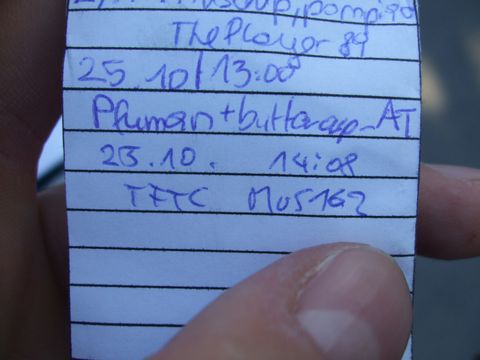 ThePlayer89
25.10/13:00
Pfuman+buttercup_AT
25.10. 14:08
TFTC MuS162